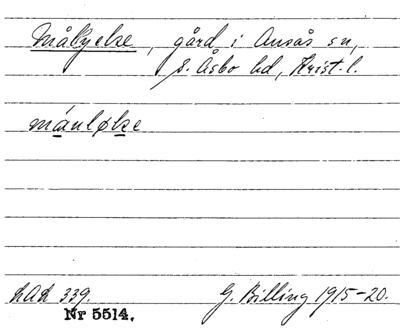 Målycke, gård i Ausås sn,
S. Åsbo hd, Krist. l.
máuløke
LAL 339.
G. Billing 1915-20.
Nr 5514.